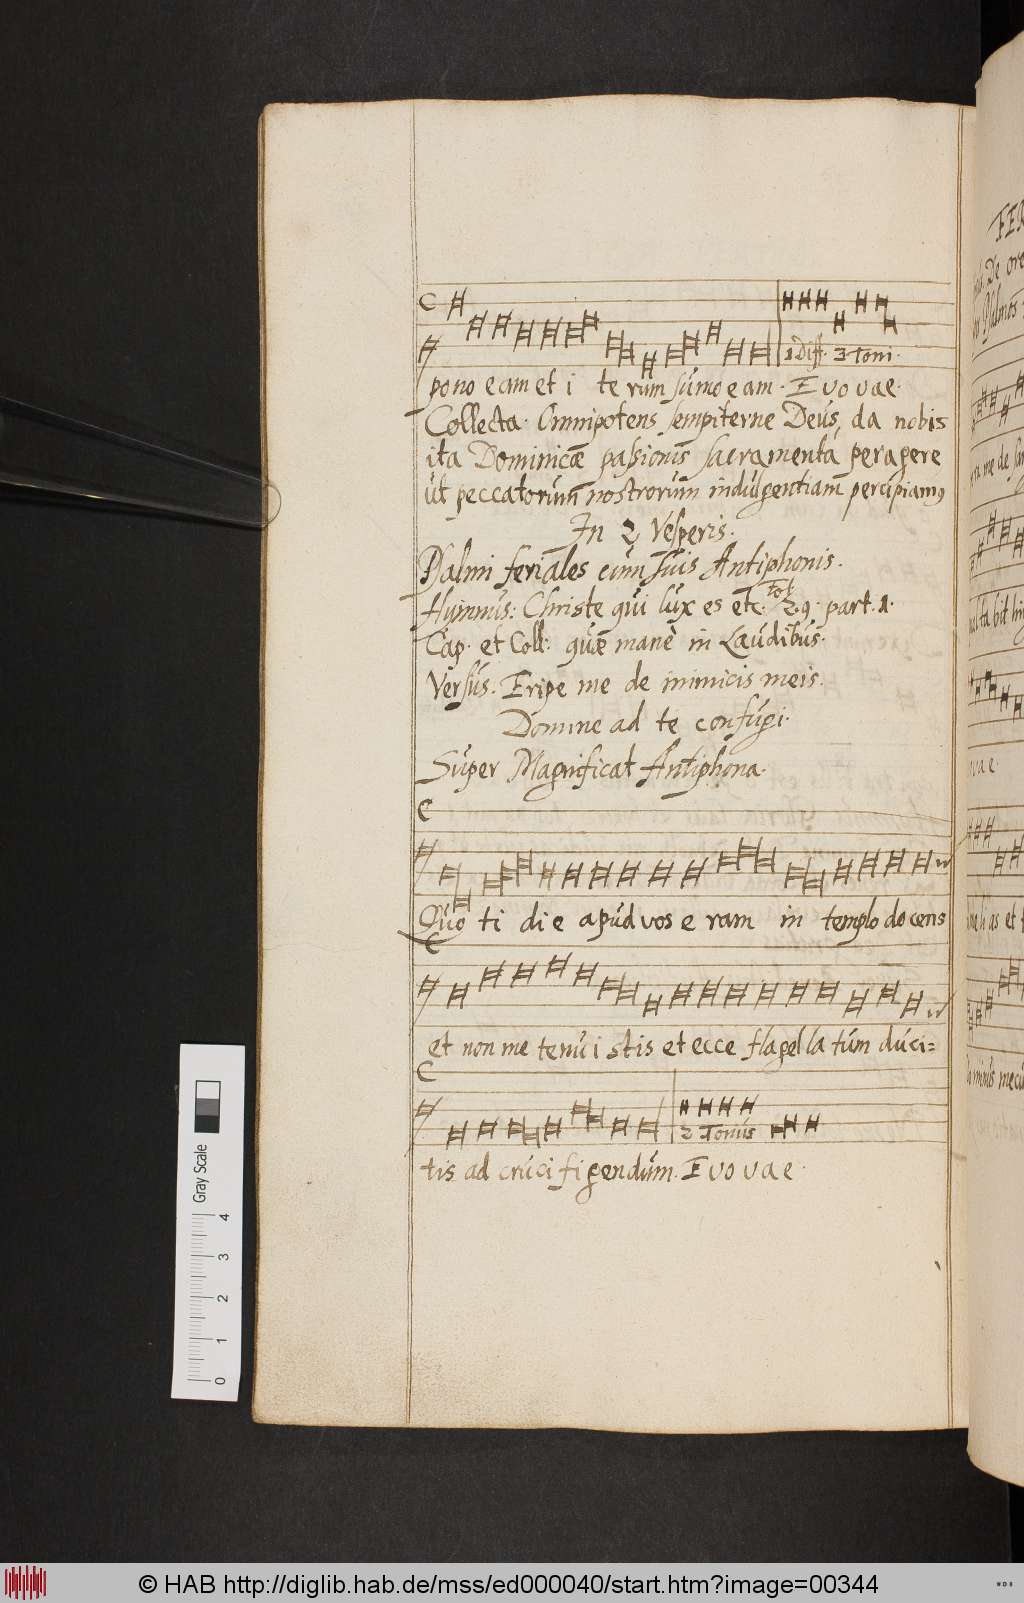 1 Diff. 3 Toni.
pono eam et i te rum sumo eam. Evovae.
Collecta. Omnipotens sempiterne Deus, da nobis
ita Dominicæ passionis sacramenta peragere
ut peccatorum nostrorum indulgentiam percipiamus
In 2 Vesperis.
Psalmi feriales cum suis Antiphonis.
Hymnus: Christe qui lux es etc. fol. 29. part. 1.
Cap. et Coll: quæ manè in Laudibus.
Versus. Eripe me de inimicis meis.
Domine ad te confugi.
Super Magnificat Antiphona.
Quo ti die apud vos e ram in templo docens
et non me tenui stis et ecce flagella tum duci=
2 Tonus
tis ad cruci figendum. Evovae.
Gray Scale
0 1 2 3 4
© HAB http://diglib.hab.de/mss/ed000040/start.htm?image=00344